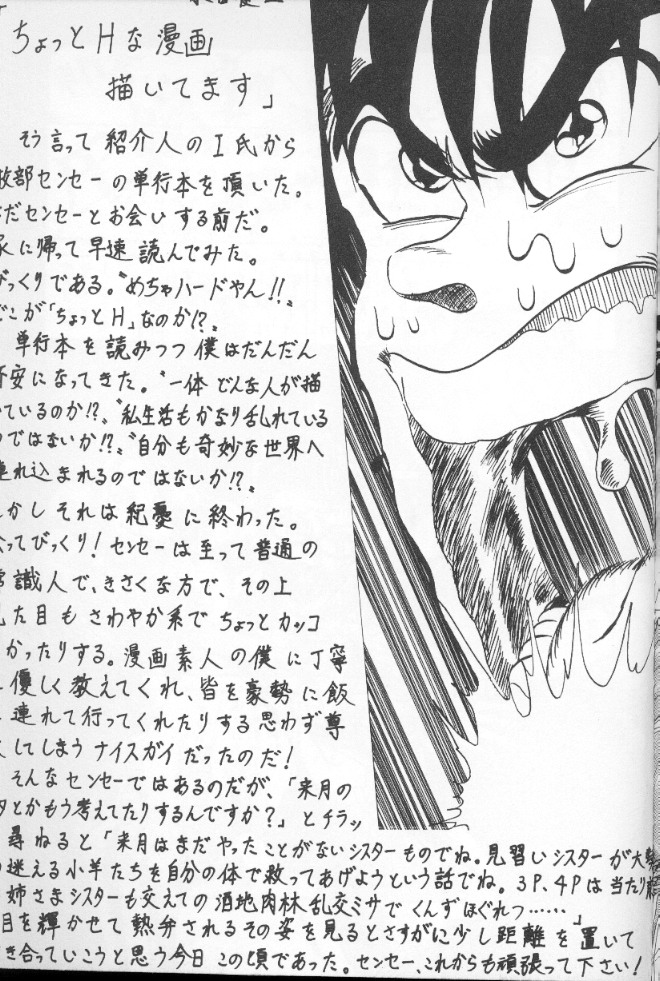 ちょっとHな漫画
描いてます」
そう言って紹介人のI氏から
センセーの単行本を頂いた。
だセンセーとお会いする前だ。
に帰って早速読んでみた。
びっくりである。〝めちゃハードやん!!〟
どこが「ちょっとH」なのか!?
単行本を読みつつ僕はだんだん
安になってきた。〝一体どんな人が描
いているのか!?〟〝私生活もかなり乱れている
のではないか!?〟〝自分も奇妙な世界へ
連れ込まれるのではないか!?〟
しかしそれは紀憂に終わった。
ってびっくり!センセーは至って普通の
常識人で、きさくな方で、その上
た目もさわやか系でちょっとカッコ
かったりする。漫画素人の僕に丁寧
優しく教えてくれ、皆を豪勢に飯
連れて行ってくれたりする思わず尊
してしまうナイスガイだったのだ!
そんなセンセーではあるのだが、「来月の
とかもう考えてたりするんですか?」とチラッ
尋ねると「来月はまだやったことがないシスターものでね。見習いシスターが大勢
迷える小羊たちを自分の体で救ってあげようという話でね。3P、4Pは当たり前
姉さまシスターも交えての酒地肉林乱交ミサでくんずほぐれつ……」
目を輝かせて熱弁されるその姿を見るとさすがに少し距離を置いて
き合っていこうと思う今日この頃であった。センセー、これからも頑張って下さい!